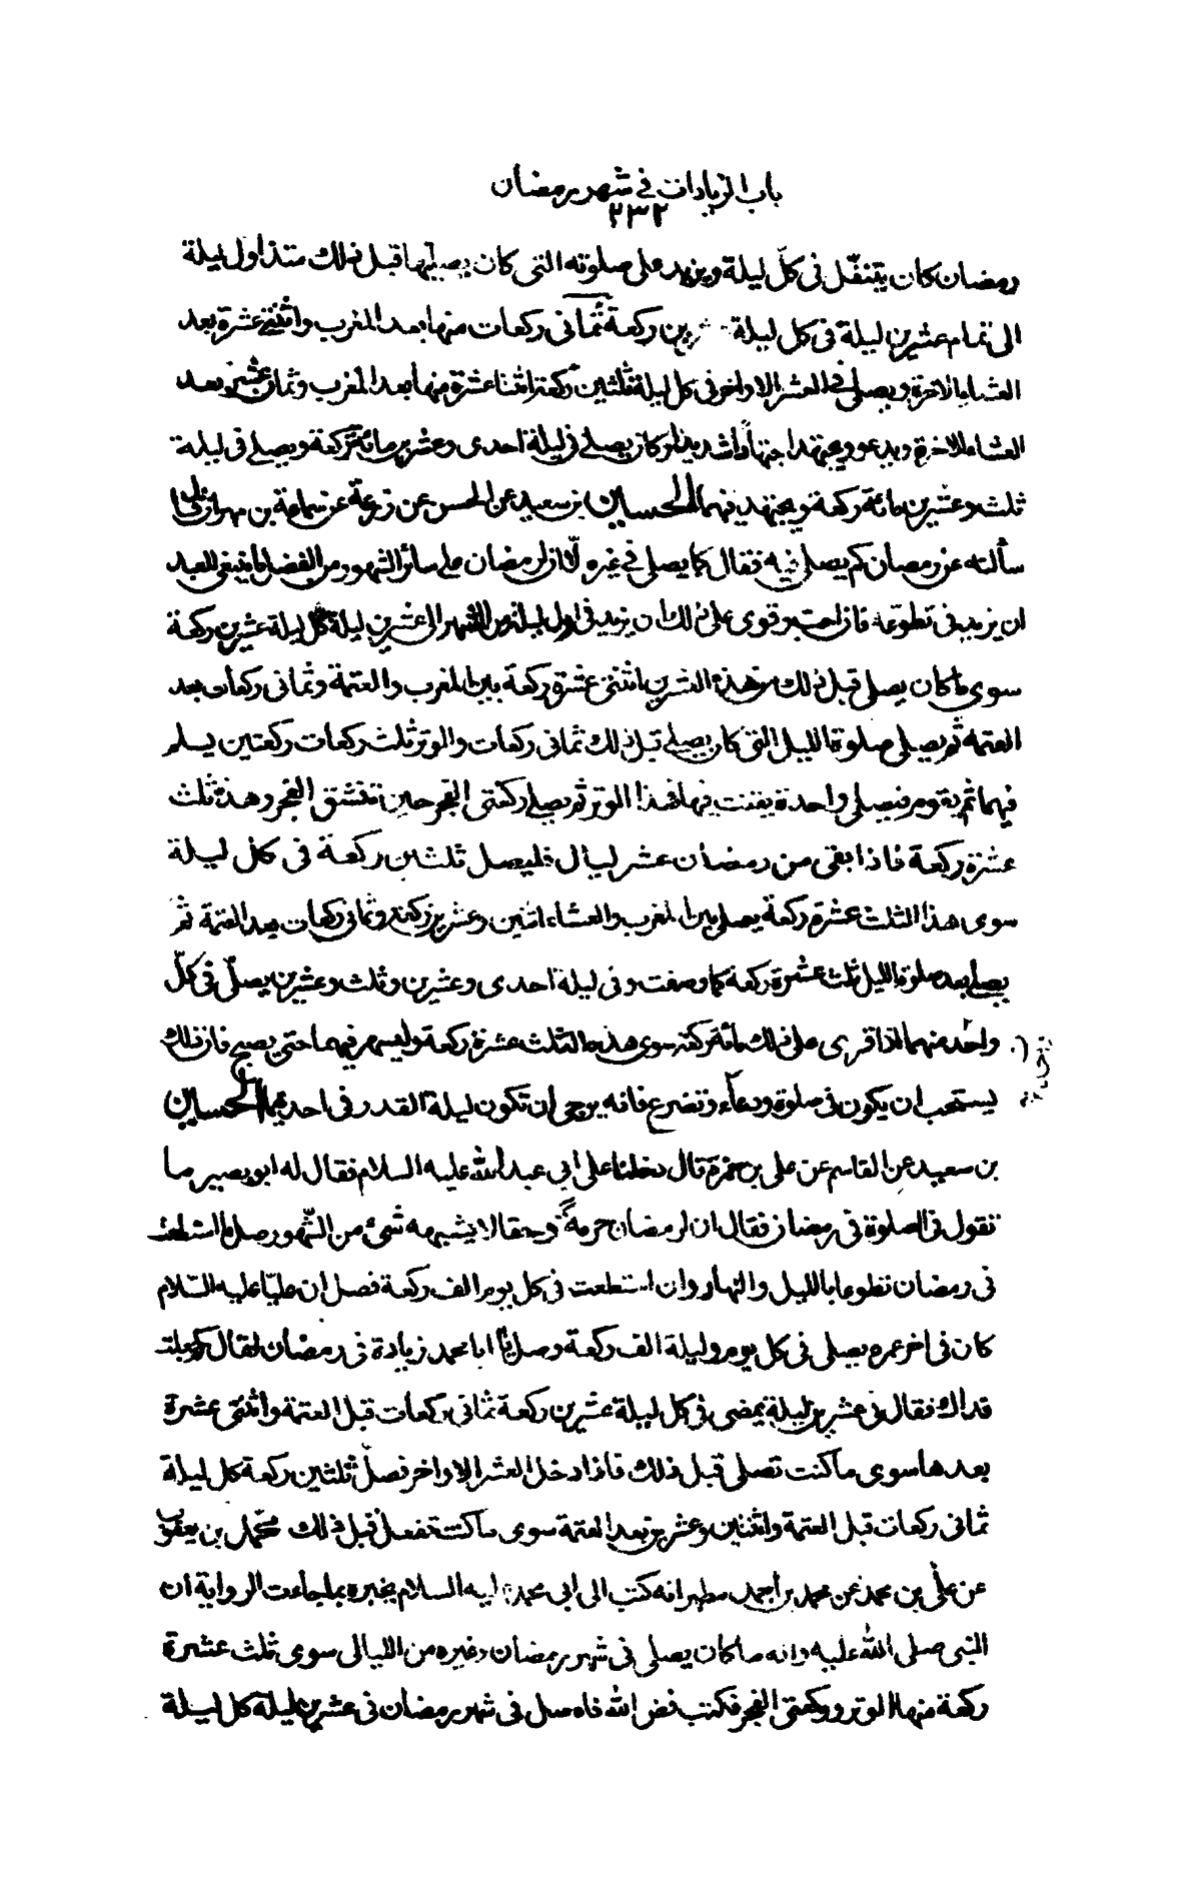 باب الزيادات في شهر رمضان
٢٣٢
رمضان كان يتنفّل فى كلّ ليلة ويزيد على صلوته التى كان يصليها قبل ذلك منذ اول ليلة
الى تمام عشرين ليلة فى كل ليلة عشرين ركعة ثمانى ركعات منها بعد المغرب واثنتى عشرة بعد
العشاء الاخرة ويصلى فى العشر الاواخر فى كل ليلة ثلثين ركعة اثنتا عشرة منها بعد المغرب وثمان عشرة بعد
العشاء الاخرة ويدعو ويجتهد اجتهادا شديدا وكان يصلى فى ليلة احدى وعشرين مائة ركعة ويصلى فى ليلة
ثلث وعشرين مائة ركعة ويجتهد فيهما الحسين بن سعيد عن الحسن عن زرعة عن سماعة بن مهران قال
سألته عن رمضان كم يصلى فيه فقال كما يصلى فى غيره الّا ان لرمضان على سائر الشهور من الفضل ما ينبغى للعبد
ان يزيد فى تطوعه فان احب وقوى على ذلك ان يزيد فى اول ليلة من الشهر الى عشرين ليلة كل ليلة عشرين ركعة
سوى ما كان يصلى قبل ذلك من هذه العشرين اثنتى عشرة ركعة بين المغرب والعتمة وثمانى ركعات بعد
العتمة ثم يصلى صلوة الليل التى كان يصلى قبل ذلك ثمانى ركعات والوتر ثلث ركعات ركعتين يسلم
فيهما ثم يقوم فيصلى واحدة يقنت فيها فهذا الوتر ثم يصلى ركعتى الفجر حين تنشق الفجر وهذه ثلث
عشرة ركعة فاذا بقى من رمضان عشر ليال فليصل ثلثين ركعة فى كل ليلة
سوى هذا الثلث عشرة ركعة يصلى بين المغرب والعشاء اثنين وعشرين ركعة وثمانى ركعات بعد العتمة ثم
يصلى بعد صلوة الليل ثلث عشرة ركعة كما وصفت وفى ليلة احدى وعشرين وثلث وعشرين يصلّى فى كلّ
واحد منهما اذا قوى على ذلك مائة ركعة سوى هذه الثلث عشرة ركعة وليسهر فيهما حتى يصبح فان ذلك
يستحب ان يكون فى صلوة ودعاء وتضرع فانه يرجى ان تكون ليلة القدر فى احديهما الحسين
بن سعيد عن القاسم عن على بن حمزة قال دخلنا على ابى عبد الله عليه السلام فقال له ابو بصير ما
تقول فى الصلوة فى رمضان فقال ان لرمضان حرمة وحقا لا يشبهه شىء من الشّهور صل ما استطعت
فى رمضان تطوعا بالليل والنهار وان استطعت فى كل يوم الف ركعة فصل ان عليّا عليه السّلام
كان فى اخر عمره يصلى فى كل يوم وليلة الف ركعة وصل يا ابا محمد زيادة فى رمضان فقال كم جعلت
فداك فقال فى عشرين ليلة يمضى فى كل ليلة عشرين ركعة ثمانى ركعات قبل العتمة واثنتى عشرة
بعدها سوى ما كنت تصلى قبل ذلك فاذا دخل العشر الاواخر فصلّ ثلثين ركعة كل ليلة
ثمانى ركعات قبل العتمة واثنتين وعشرين بعد العتمة سوى ما كنت تفعل قبل ذلك محمّد بن يعقوب
عن على بن محمد عن محمد بن احمد بن مطهر انه كتب الى ابى محمد عليه السلام يخبره بما جاءت الرواية ان
النبى صلى الله عليه وانه ما كان يصلى فى شهر رمضان وغيره من الليالى سوى ثلث عشرة
ركعة منها الوتر وركعتى الفجر فكتب فض الله فاه صلى فى شهر رمضان فى عشرين ليلة كل ليلة